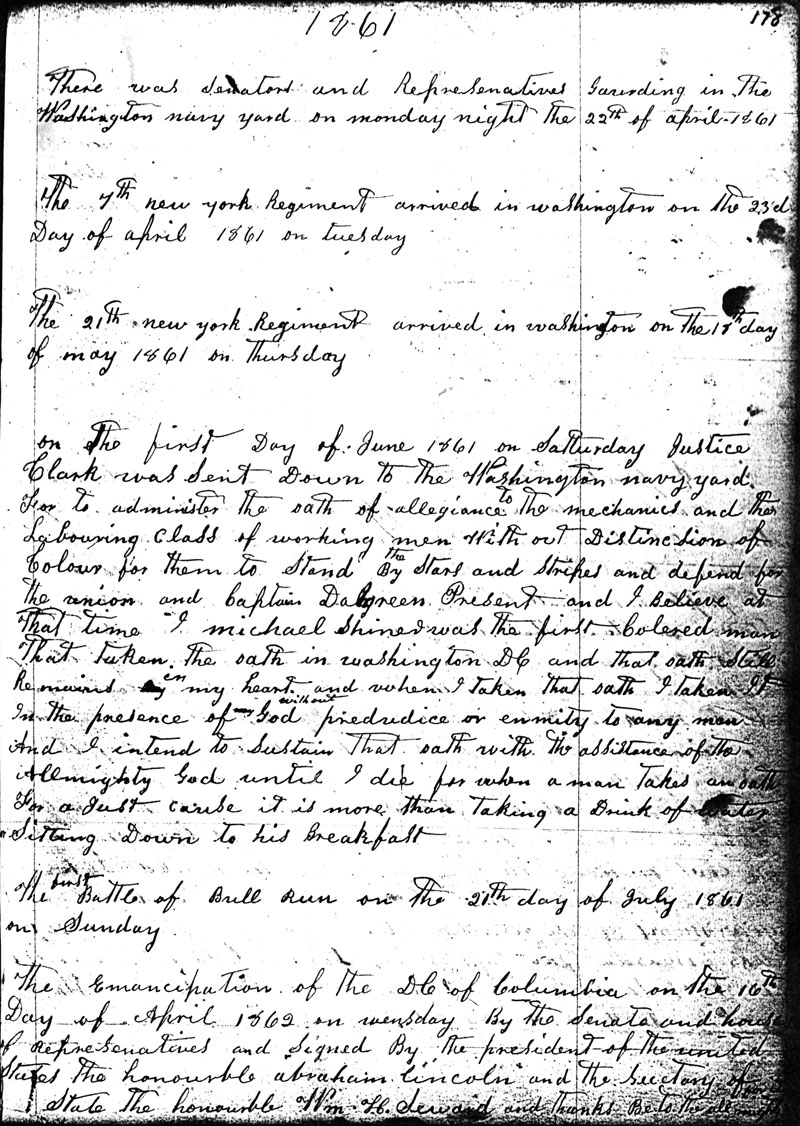 1861
178
There was Senators and Represenatives Gaurding in The
Washington navy yard on monday night the 22th of april 1861
The 7th new york Regiment arrived in washington on the 23d
Day of april 1861 on tuesday
The 21th new york Regiment arrived in washington on the 18th day
of may 1861 on Thursday
on The first Day of June 1861 on Satturday Justice
Clark was Sent Down to the Washington navy yard.
For to administer the oath of allegiance to the mechanics and the
Labouring Class of working men With out Distincsion of
Colour for them to Stand By the Stars and Stripes and defend for
the union and Captain Dalgreen Present and I Believe at
That time I michael Shiner was the first Colered man
That taken the oath in washington DC and that oath Still
Remains in my heart and when I taken that oath I taken It
In the presence of God without predudice or enmity to any man
And I intend to Sustain That oath with the assistance of the
Allmighty God until I die for when a man Takes an oath
For a Just cause it is more than taking a Drink of water
Sitting Down to his Breakfast
The first Battle of Bull Run on the 21th day of July 1861
on Sunday
The Emancipation of the DC of Columbia on the 16th
Day of April 1862 on wensday By the Senate and house
of Represenatives and Signed By the president of the united
States the honourble abraham lincoln and the Sectary of
State the honourble Wm. H. Seward and thanks Be to the